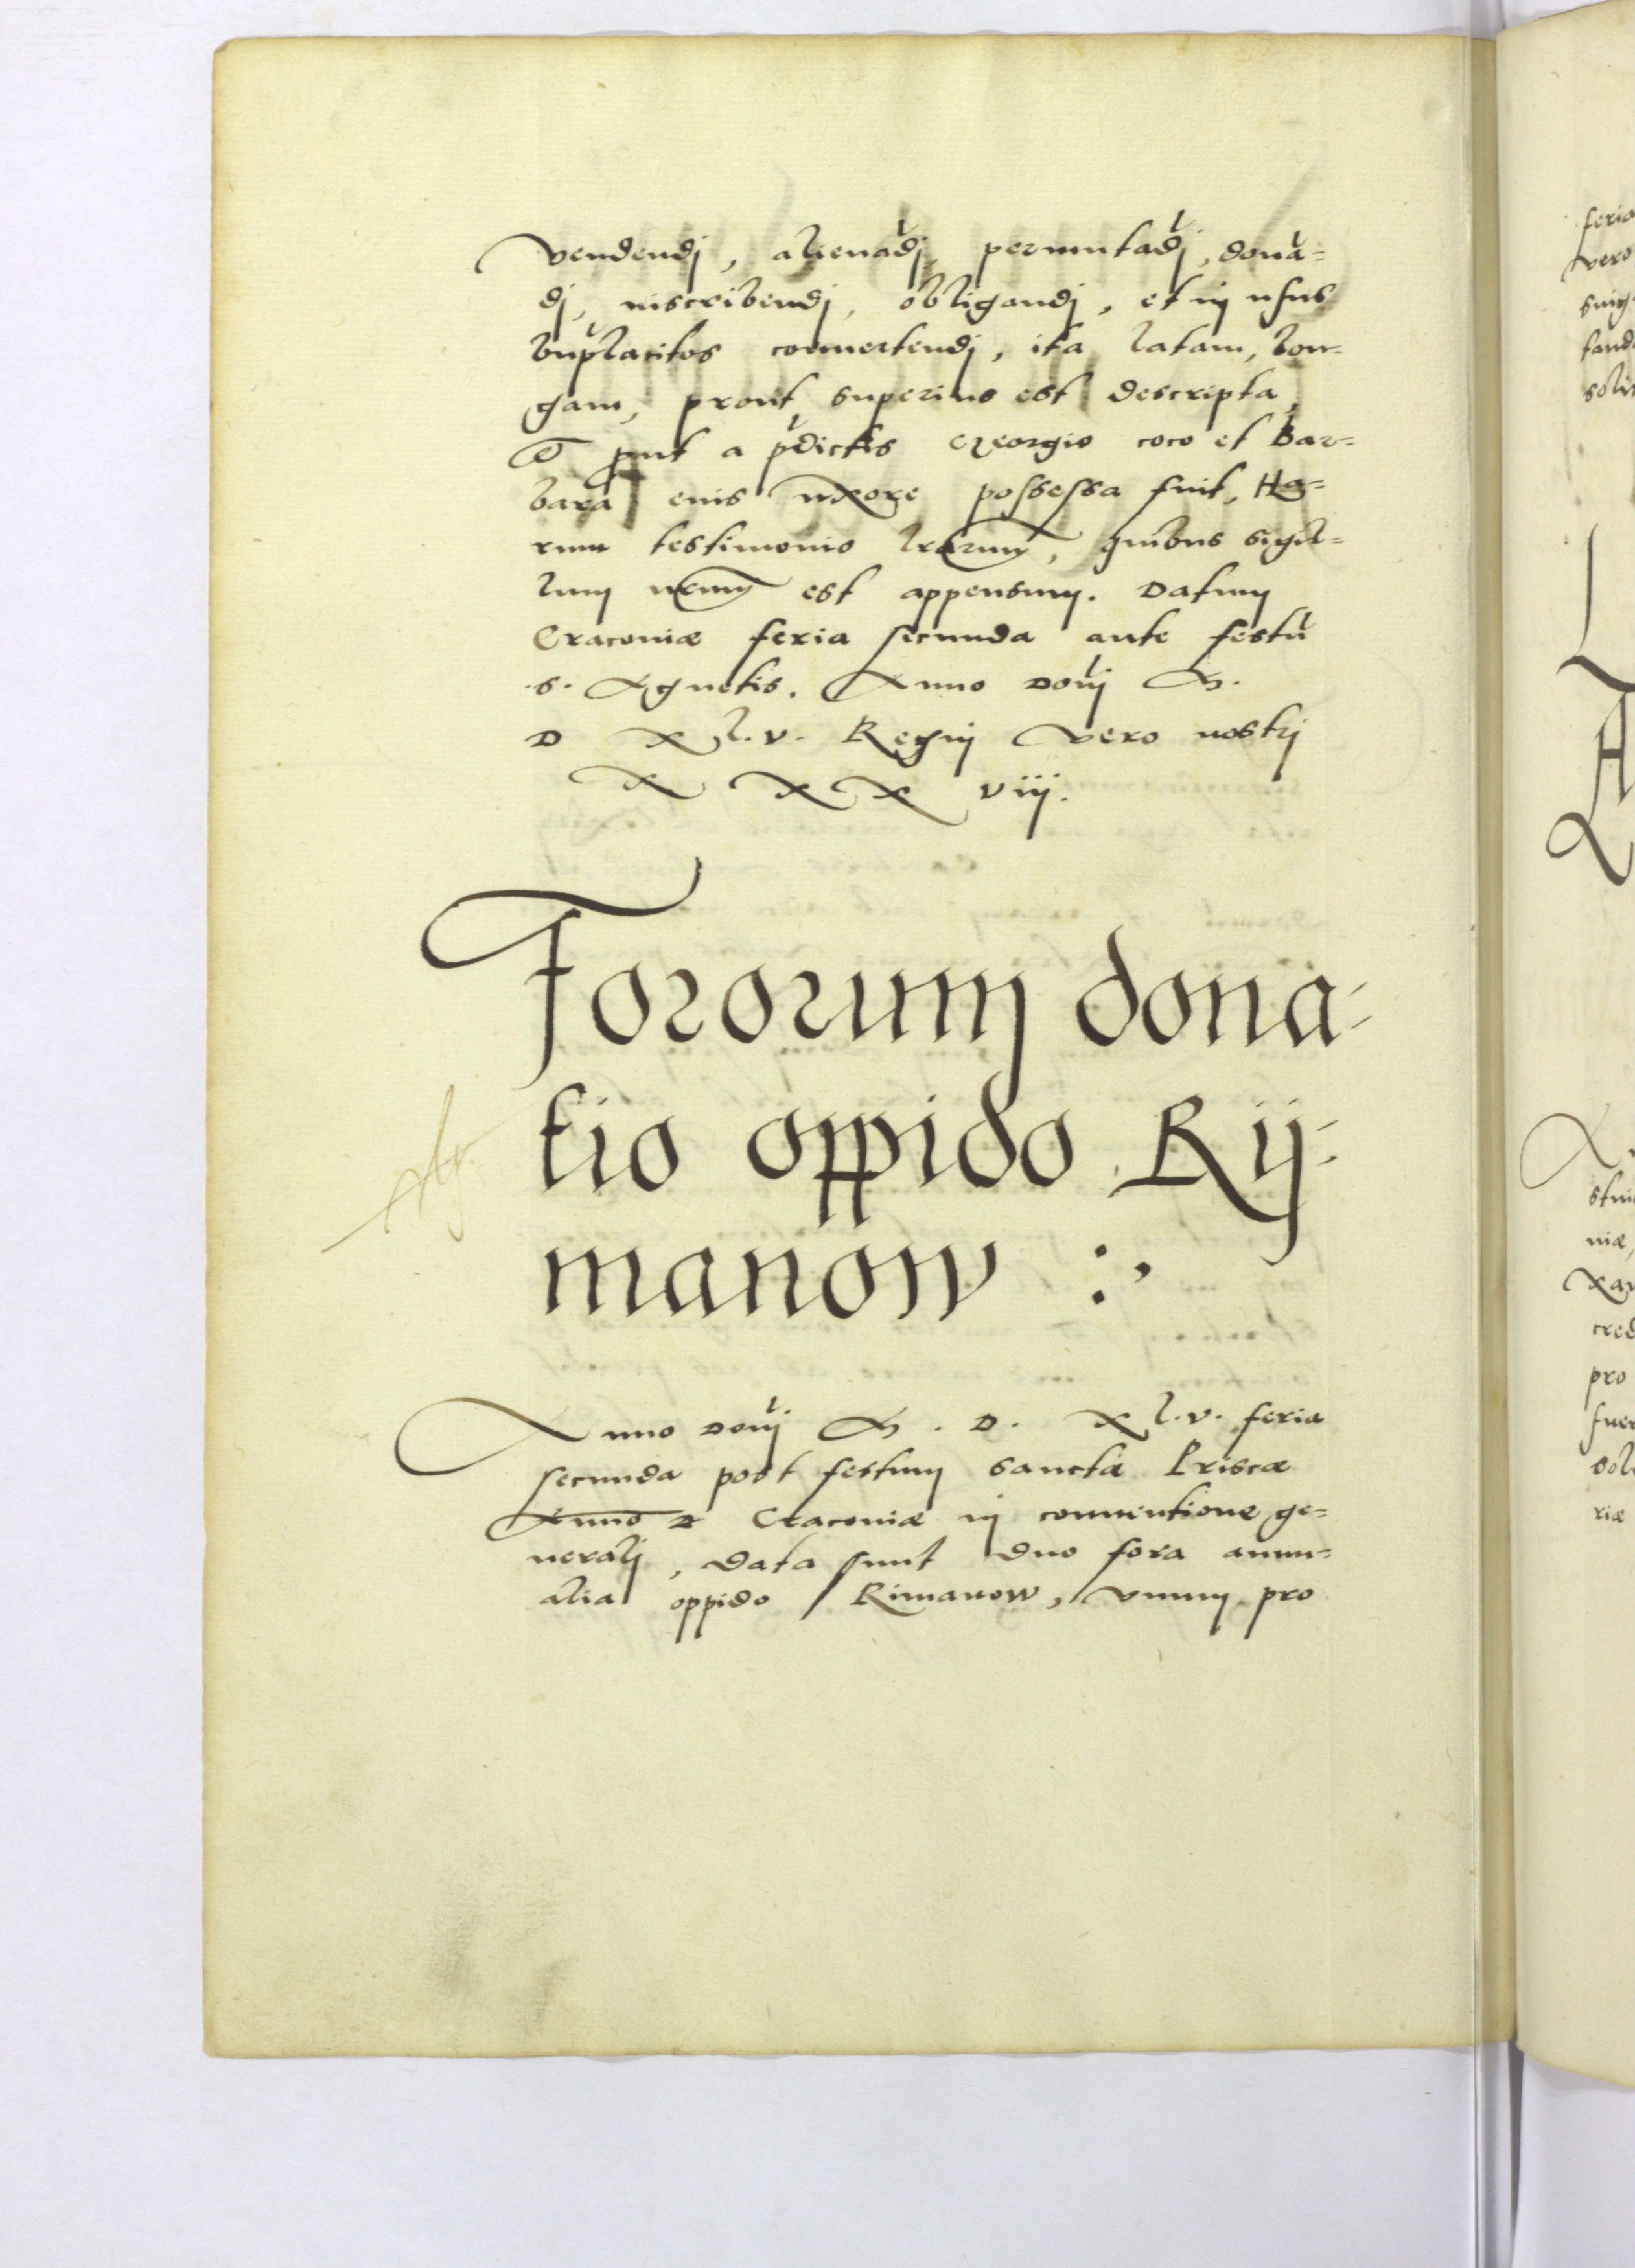 vendendj, alienādj, permutādj, donā=
dj, inscribendj, obligandj, et in usus
bnplacitos convertendj, ita latam, lon=
gam, prout superius est descripta,
et put a pdictis Georgio coco et Bar=
bara eius uxore possessa fuit, Ha=
rum testimonio lrarum, quibus sigil=
lum nrum est appensum. Datum
Cracoviæ feria secunda ante festū
.S. Agnetis. Anno Donj M.
D X L.V. Regnj vero nostrj
X X X viij.
Fororum dona-
tio oppido Rij-
manow :,
Anno Donj M. D. X L.V. feria
secunda post festum sanctæ Priscæ
Anno Cracoviæ in conventione ge=
neralj, data sunt duo fora annu=
alia oppido Rimanow, vnum pro
feria
vero